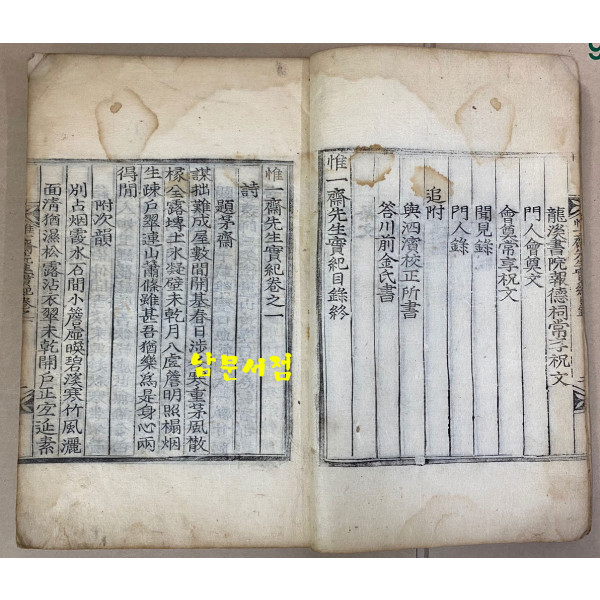 龍溪書院報德祠常享祝文
門人會奠文
會奠常享祝文
聞見錄
門人錄
追附
與泗濱校正所書
答川前金氏書
惟一齋先生實紀目錄終
惟一齋先生實紀卷之一
詩
題茅齋
謀拙難成屋數間開基春日涉寒重茅風散
椽全露塼土水凝壁未乾月入虛簷明照榻烟
生疎戶翠連山蕭條雖甚吾猶樂爲是身心兩
得閒
附次韻
別占烟霞水石間小簷虛暎碧溪寒竹風灑
面淸猶濕松露沾衣翠未乾開戶正宜延素
남문서점